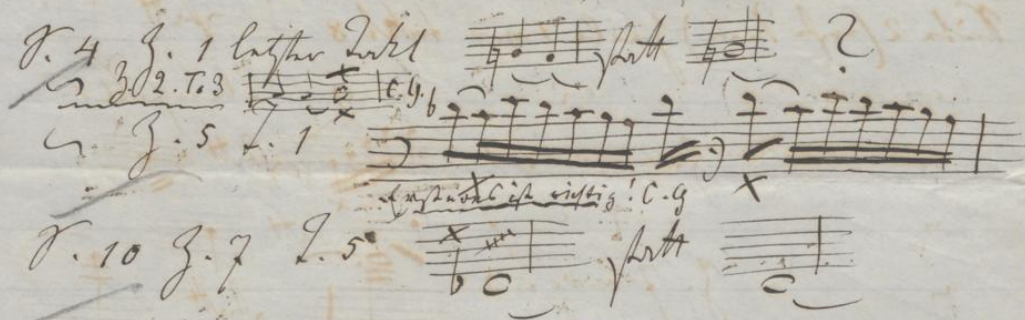 S. 4 Z. 1 letzter Takt statt ?
Z. 2. T. 3 C. G.
Z. 5 T. 1
Ersteres ist richtig! C. G
S. 10 Z. 7 T. 5 statt